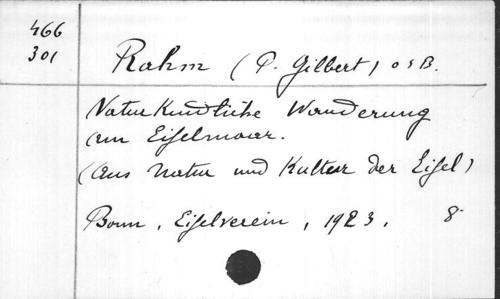 466
301
Rahm (P. Gilbert) OSB.
Naturkundliche Wanderung
am Eifelmaar.
(aus Natur und Kultur der Eifel)
Bonn, Eifelverein, 1923. 8°